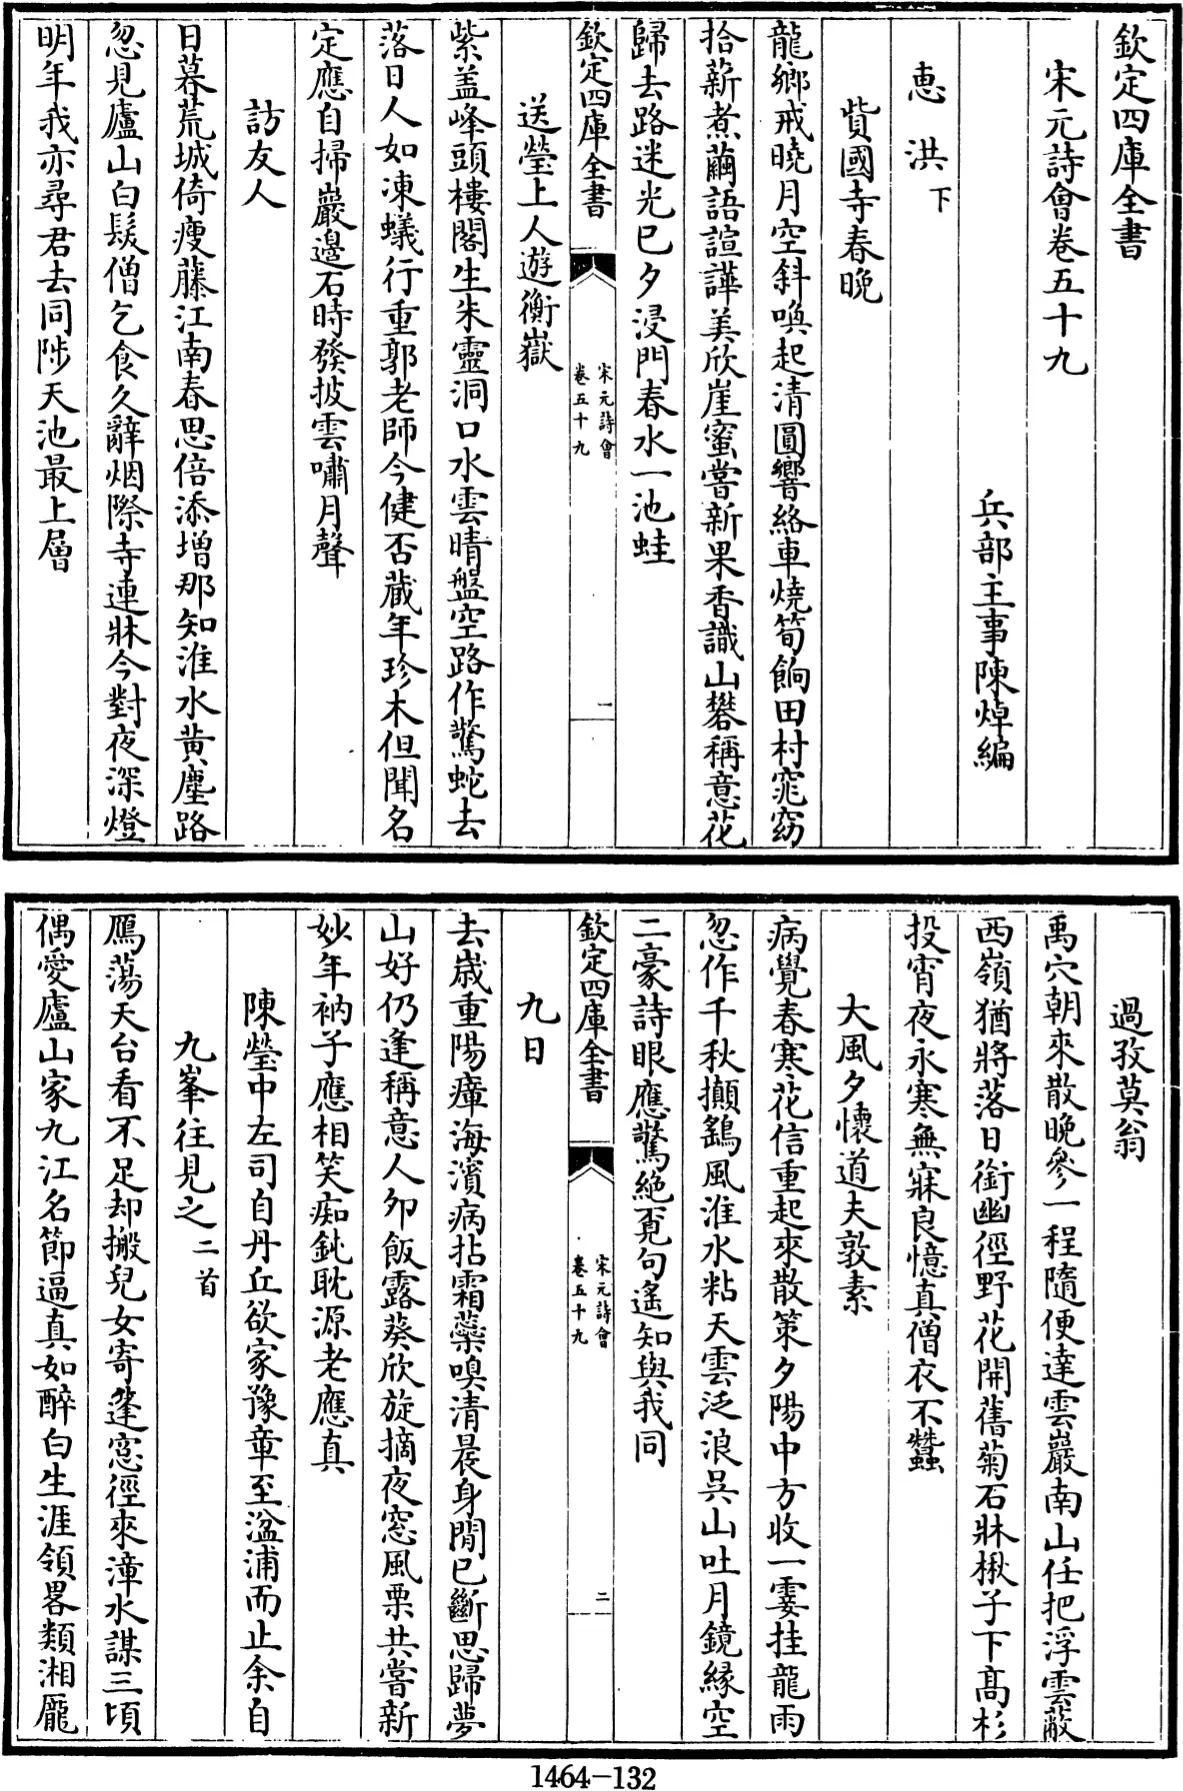 欽定四庫全書
宋元詩會卷五十九
兵部主事陳焯編
惠洪下
貲國寺春晚
龍鄉戒曉月空斜喚起清圓響絡車燒筍餉田村窕窈
拾薪煮繭語諠譁美欣崖蜜嘗新果香識山礬稱意花
歸去路迷光已夕浸門春水一池蛙
欽定四庫全書
宋元詩會
卷五十九
一
送瑩上人遊衡嶽
紫盖峰頭樓閣生朱靈洞口水雲晴盤空路作驚蛇去
落日人如凍蟻行重郭老師今健否蔵年珍木但聞名
定應自掃巖邊石時發披雲嘯月聲
訪友人
日暮荒城倚瘦藤江南春思倍添增那知淮水黄塵路
忽見廬山白髮僧乞食久辭烟際寺連牀今對夜深燈
明年我亦尋君去同陟天池最上層
過孜莫翁
禹穴朝來散晚參一程隨便達雲巖南山任把浮雲蔽
西嶺猶將落日銜幽徑野花開舊菊石牀楸子下髙杉
投宵夜永寒無寐良憶真僧衣不蠶
大風夕懷道夫敦素
病覺春寒花信重起來散策夕陽中方收一霎挂龍雨
忽作千秋攧鷂風淮水粘天雲泛浪吳山吐月鏡緣空
二豪詩眼應驚絶覔句遙知與我同
欽定四庫全書
宋元詩會
卷五十九
二
九日
去歲重陽瘴海濱病拈霜蘂嗅清晨身閒已斷思歸夢
山好仍逢稱意人夘飯露葵欣旋摘夜窓風栗共嘗新
妙年衲子應相笑痴鈍耽源老應真
陳瑩中左司自丹丘欲家豫章至湓浦而止余自
九峯往見之二首
鴈蕩天台看不足却搬兒女寄篷窓徑來漳水謀三頃
偶愛廬山家九江名節逼真如醉白生涯領畧類湘龐
1464—132